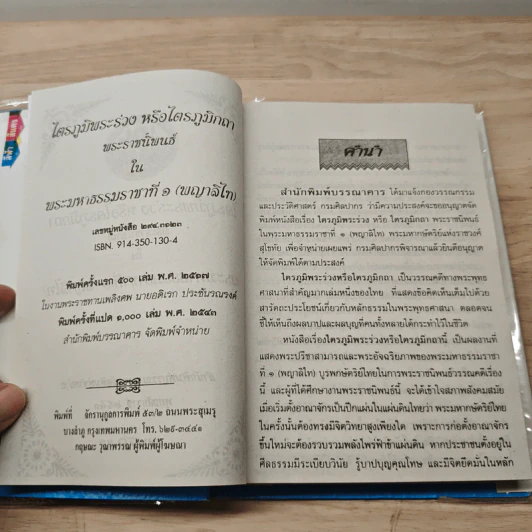 ไตรภูมิพระร่วง หรือไตรภูมิกถา
พระราชนิพนธ์
ใน
พระมหาธรรมราชาที่ ๑ (พญาลิไท)
เลขหมู่หนังสือ ๒๙๔.๓๑๒๓
ISBN. 914-350-130-4
พิมพ์ครั้งแรก ๕๐๐ เล่ม พ.ศ. ๒๔๖๗
ในงานพระราชทานเพลิงศพ นายอดิเรก ประชันรณรงค์
พิมพ์ครั้งที่แปด ๑,๐๐๐ เล่ม พ.ศ. ๒๕๔๓
สำนักพิมพ์บรรณาคาร จัดพิมพ์จำหน่าย
พิมพ์ที่ จักรานุกูลการพิมพ์ ๕๓/๒ ถนนพระสุเมรุ
บางลำภู กรุงเทพมหานคร โทร. ๒๘๑-๓๔๔๑
กฤษณะ วุฒาพรรณ ผู้พิมพ์ผู้โฆษณา
คำนำ
สำนักพิมพ์บรรณาคาร ได้มาแจ้งกองวรรณกรรม
และประวัติศาสตร์ กรมศิลปากร ว่ามีความประสงค์จะขออนุญาตจัด
พิมพ์หนังสือเรื่อง ไตรภูมิพระร่วง หรือ ไตรภูมิกถา พระราชนิพนธ์
ในพระมหาธรรมราชาที่ ๑ (พญาลิไท) พระมหากษัตริย์แห่งราชวงศ์
สุโขทัย เพื่อจำหน่ายเผยแพร่ กรมศิลปากรพิจารณาแล้วยินดีอนุญาต
ให้จัดพิมพ์ได้ตามประสงค์
ไตรภูมิพระร่วงหรือไตรภูมิกถา เป็นวรรณคดีทางพระพุทธ
ศาสนาที่สำคัญมากเล่มหนึ่งของไทย ที่แสดงข้อคิดเห็นเต็มไปด้วย
สารัตถะประโยชน์เกี่ยวกับหลักธรรมในพระพุทธศาสนา ตลอดจน
ชี้ให้เห็นถึงผลบาปและผลบุญที่คนทั้งหลายได้กระทำไว้ในชีวิต
หนังสือเรื่องไตรภูมิพระร่วงหรือไตรภูมิกถานี้ เป็นผลงานที่
แสดงพระปรีชาสามารถและพระอัจฉริยภาพของพระมหาธรรมราชา
ที่ ๑ (พญาลิไท) บูรพกษัตริย์ไทยในการพระราชนิพนธ์วรรณคดีเรื่อง
นี้ และผู้ที่ได้ศึกษางานพระราชนิพนธ์นี้ จะได้เข้าใจสภาพสังคมสมัย
เมื่อเริ่มตั้งอาณาจักรเป็นปึกแผ่นในแผ่นดินไทยว่า พระมหากษัตริย์ไทย
ในครั้งนั้นต้องทรงมีจิตวิทยาสูงเพียงใด เพราะการก่อตั้งอาณาจักร
ขึ้นใหม่จะต้องรวบรวมพลังไพร่ฟ้าข้าแผ่นดิน หากประชาชนตั้งอยู่ใน
ศีลธรรมมีระเบียบวินัย รู้บาปบุญคุณโทษ และมีจิตยึดมั่นในหลัก